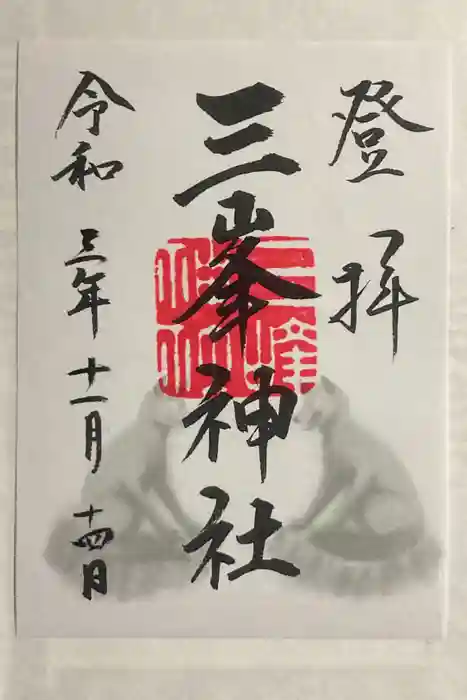 登拝
三峯神社
令和三年十一月十四日